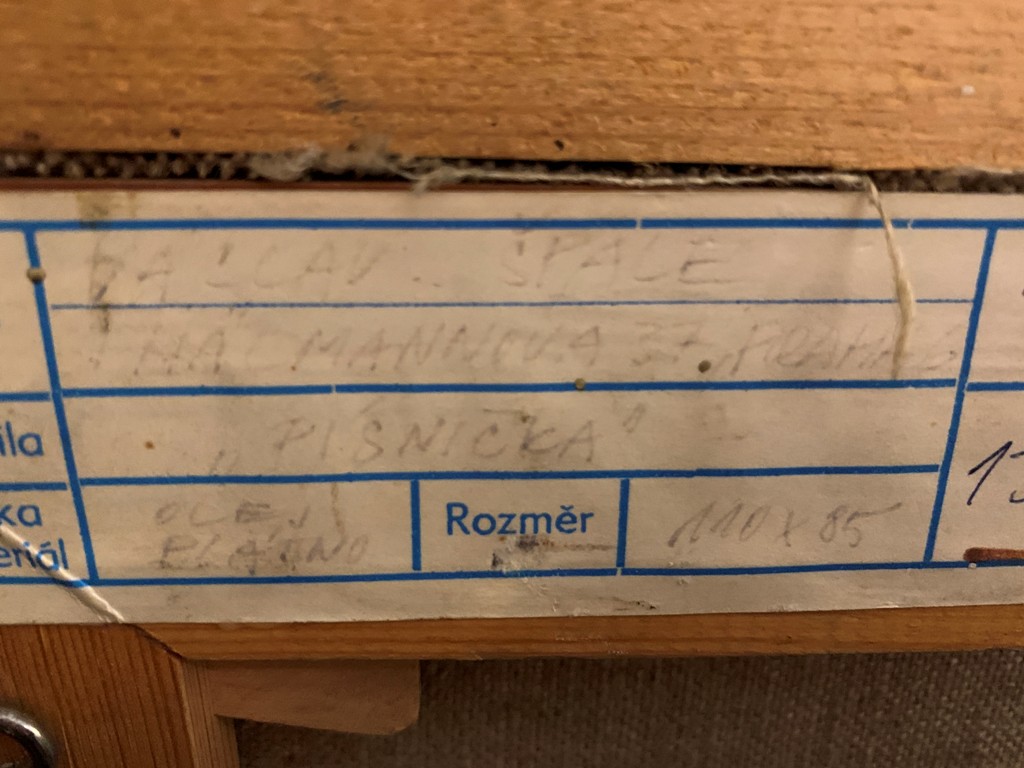 VÁCLAV ŠPALE
HACMANNOVA 37, PRAHA
ila
„PÍSNIČKA"
ka
eriál
OLEJ
PLÁTNO
Rozměr
110 x 85